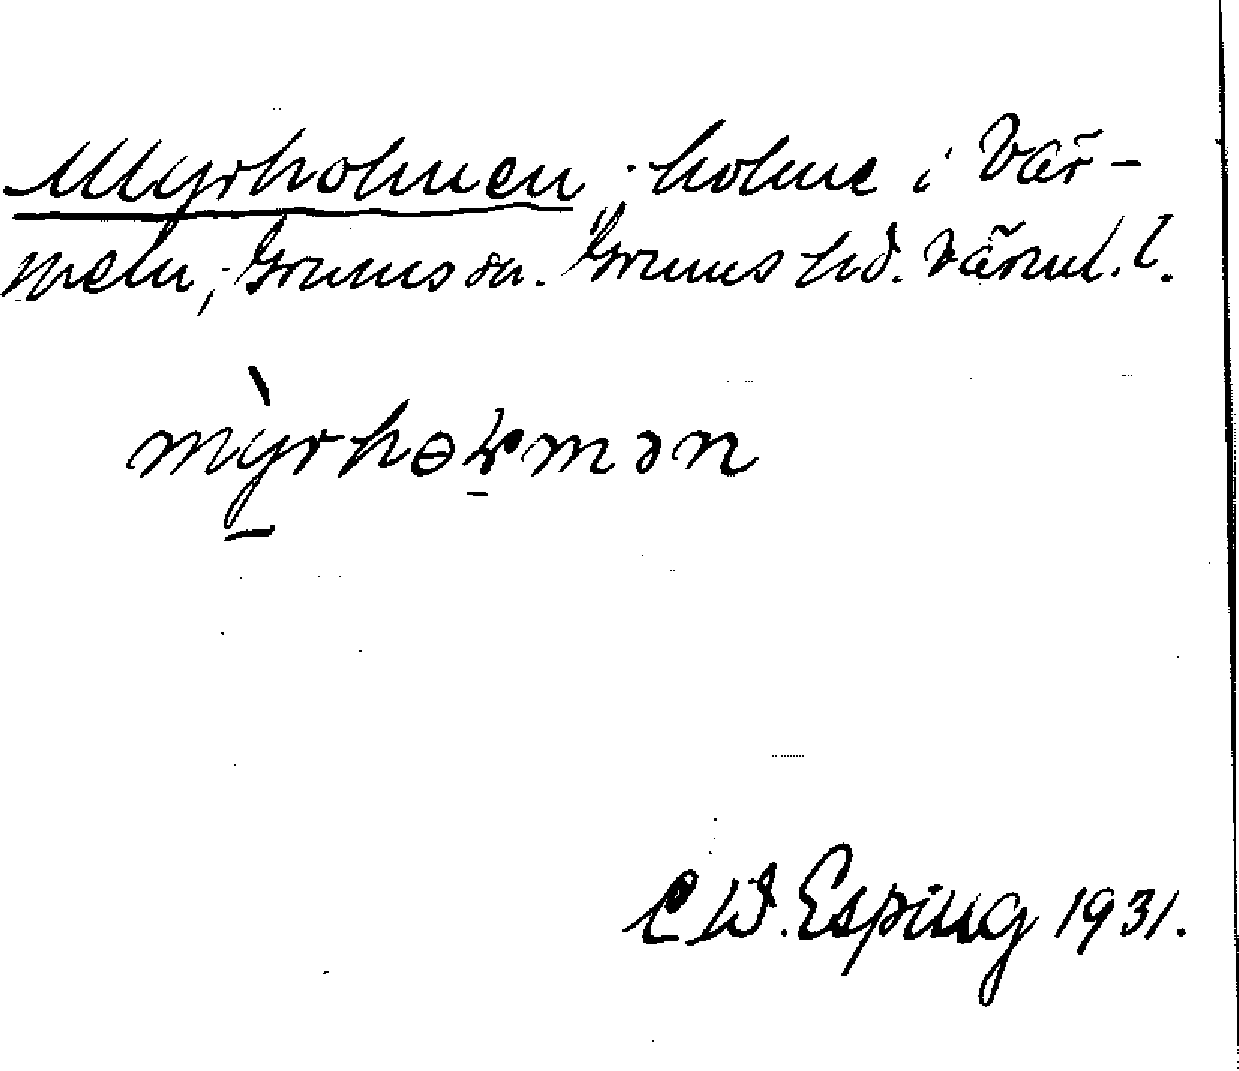 Myrholmen, holme i Vär-
meln, Grums sn. Grums hd. Värml. l.
mỳrhɵɫmən
C W. Esping 1931.